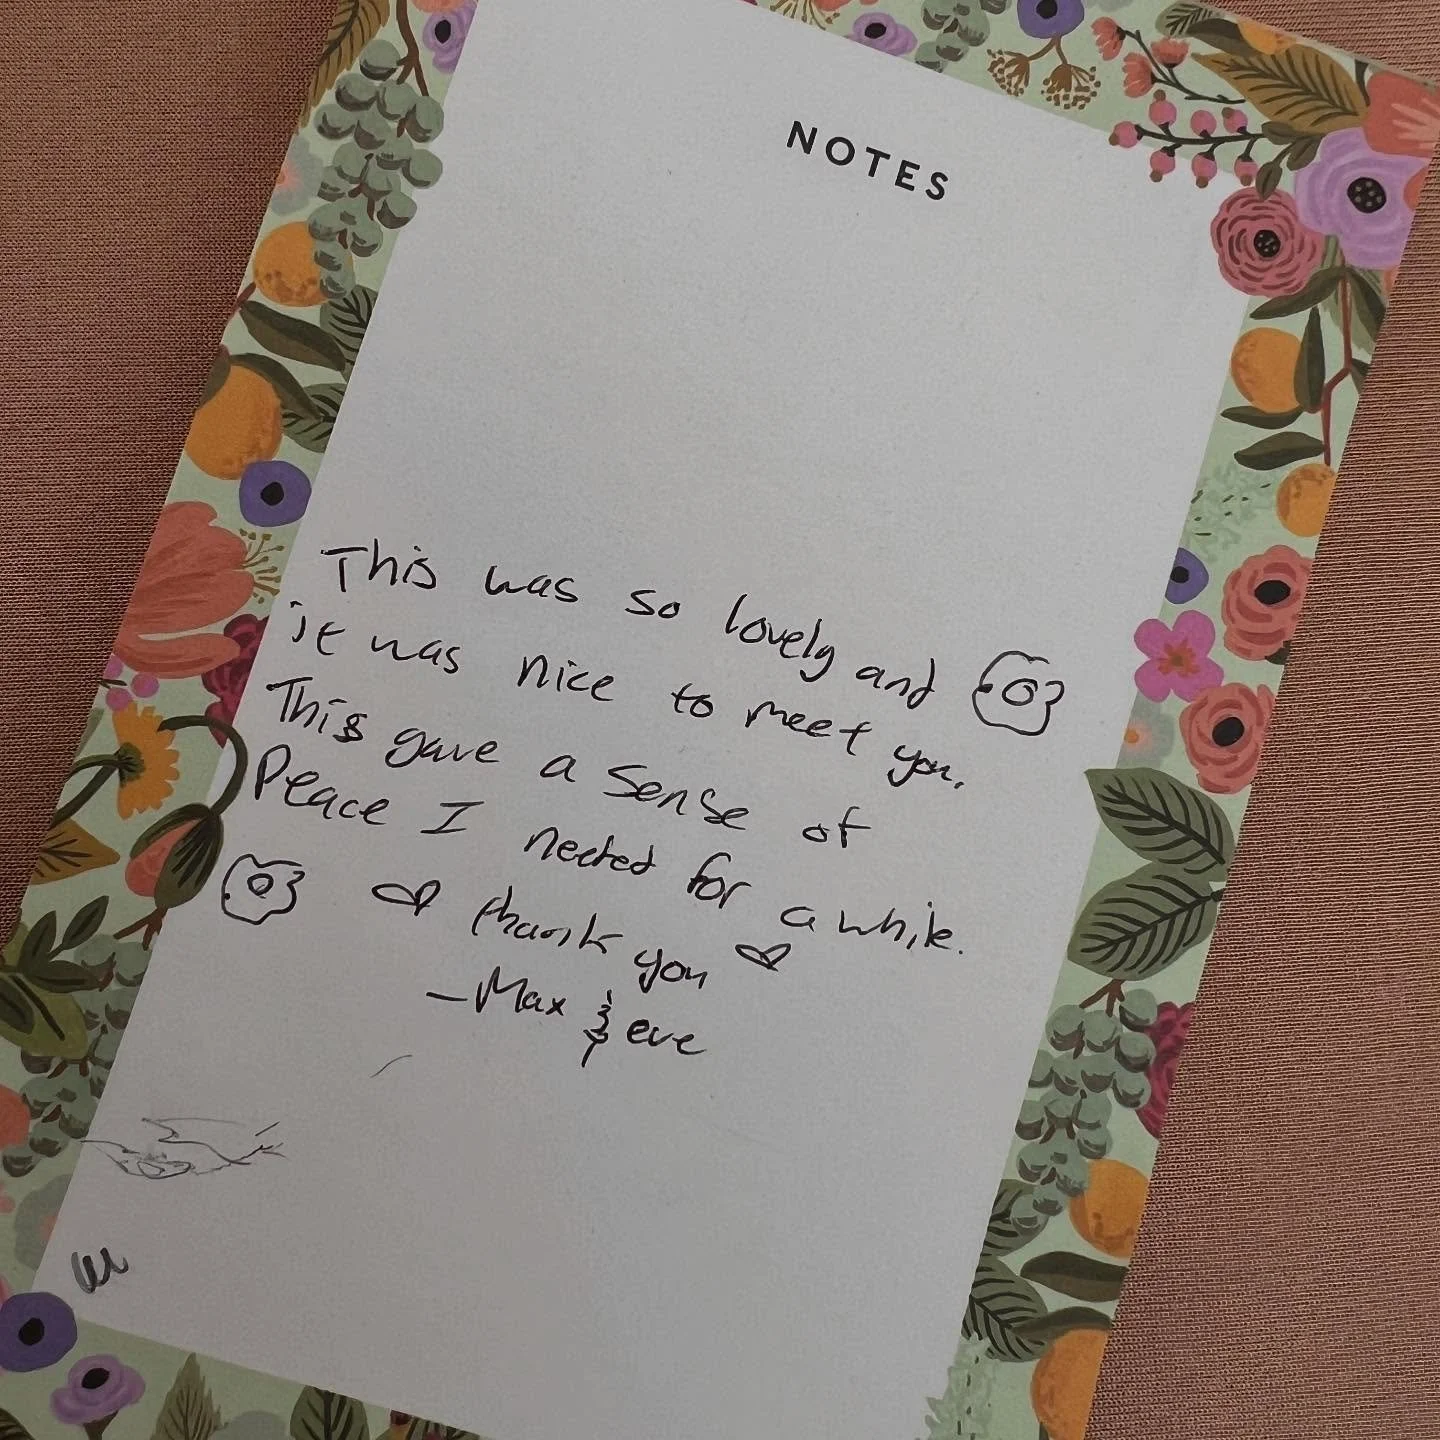 NOTES
This was so lovely and
it was nice to meet you.
This gave a sense of
Peace I needed for a while.
thank you
- Max & eve